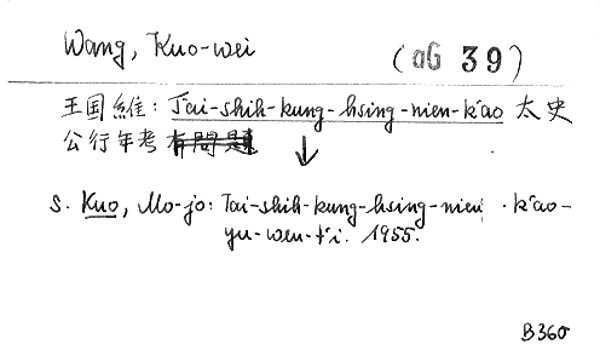 Wang, Kuo-wei (aG 39)
王国維: Tai-shih-kung-hsing-nien-k'ao 太史
公行年考 有問題 ↓
s. Kuo, Mo-jo: Tai-shih-kung-hsing-nien-k'ao-
yu-wen-t'i. 1955.
B360